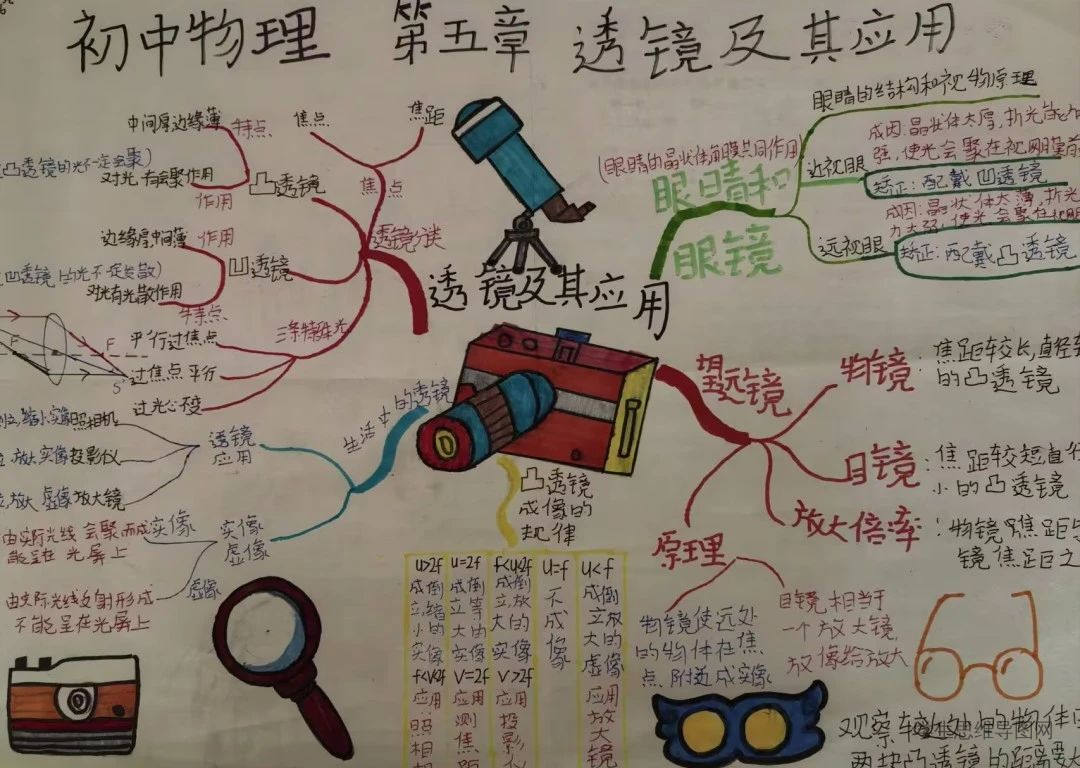 初中物理 第五章 透镜及其应用
透镜及其应用
透镜分类
焦点
焦点
焦距
凸透镜
特点
中间厚边缘薄
凸透镜的光不一定会聚)
对光有会聚作用
作用
凹透镜
作用
边缘厚,中间薄
凹透镜的光不一定发散)
对光有光散作用
特点
三条特殊光
平行过焦点
过焦点平行
过光心不变
F
F
S'
生活中的透镜
透镜
应用
缩小实像照相机
放大实像投影仪
放大虚像放大镜
实像
虚像
实像
由实际光线会聚而成
能呈在光屏上
虚像
由实际光线反射形成
不能呈在光屏上
凸透镜
成像的
规律
u>2f 成倒立,缩小的实像 f<v<2f 应用照相
u=2f 成倒立等大的实像 v=2f 应用测焦距
f<u<2f 成倒立放大的实像 v>2f 应用投影仪
u=f 不成像
u<f 成倒立放大的虚像 应用放大镜
眼睛和
眼镜
(眼睛的晶状体角膜共同作用)
眼睛的结构和视物原理
近视眼
成因:晶状体太厚,折光能
强,使光会聚在视网膜前
矫正:配戴凹透镜
远视眼
成因:晶状体太薄,折光
力太弱,使光会聚在视网
矫正:配戴凸透镜
望远镜
物镜:焦距较长,直径
的凸透镜
目镜:焦距较短直径
小的凸透镜
放大倍率:物镜焦距与
镜焦距之
原理
物镜使远处
的物体在焦
点附近成实像
目镜相当于
一个放大镜
放像给放大
观察较近处的物体
两块凸透镜的距离
思维导图网